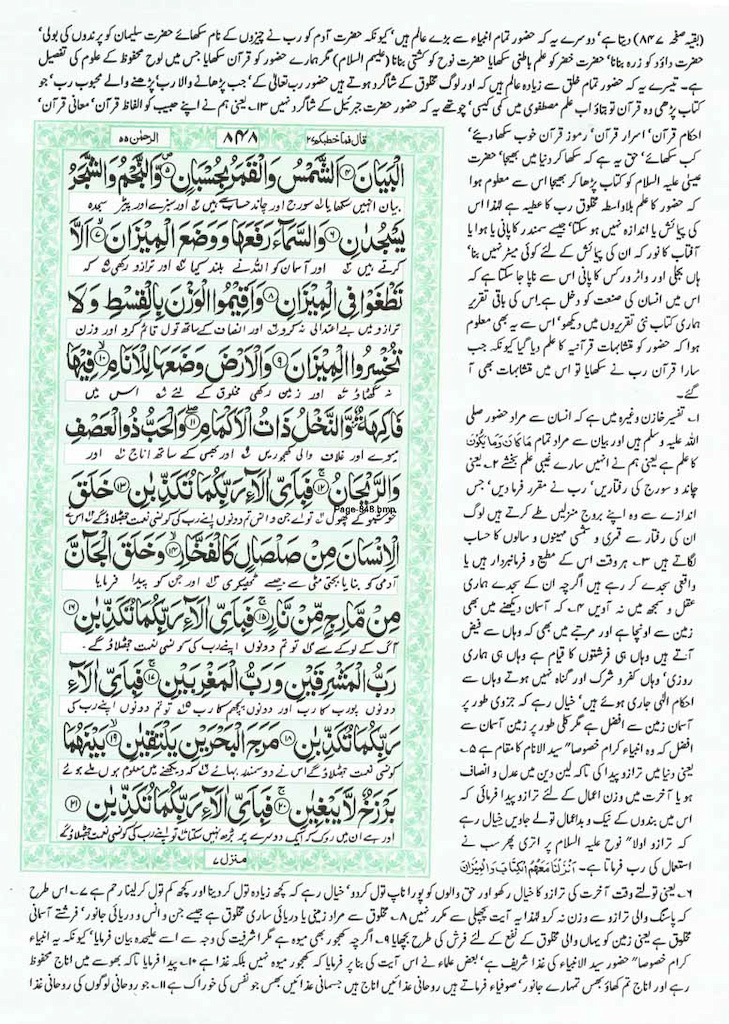 (بقیہ صفحہ ۸۴۷) دیتا ہے' دوسرے یہ کہ حضور تمام انبیاء سے بڑے عالم ہیں' کیونکہ حضرت آدم کو رب نے چیزوں کے نام سکھائے حضرت سلیمان کو پرندوں کی بولی'
حضرت داؤد کو زرہ بنانا' حضرت خضر کو علم باطنی سکھایا حضرت نوح کو کشتی بنانا (علیہم السلام) مگر ہمارے حضور کو قرآن سکھایا جس میں لوح محفوظ کے علوم کی تفصیل
ہے۔ تیسرے یہ کہ حضور تمام خلق سے زیادہ عالم ہیں کہ اور لوگ مخلوق کے شاگرد ہوتے ہیں حضور رب تعالیٰ کے' جب پڑھانے والا رب' پڑھنے والے محبوب رب' جو
کتاب پڑھی وہ قرآن تو بتاؤ اب علم مصطفوی میں کمی کیسی' چوتھے یہ کہ حضور حضرت جبرئیل کے شاگرد نہیں ۱۳۔ یعنی ہم نے اپنے حبیب کو الفاظ قرآن' معانی قرآن'
احکام قرآن' اسرار قرآن' رموز قرآن خوب سکھا دیئے'
کب سکھائے' حق یہ ہے کہ سکھا کر دنیا میں بھیجا' حضرت
عیسیٰ علیہ السلام کو کتاب پڑھا کر بھیجا اس سے معلوم ہوا
کہ حضور کا علم بلاواسطہ مخلوق رب کا عطیہ ہے لہٰذا اس
کی پیمائش یا اندازہ نہیں ہو سکتا' جیسے سمندر کا پانی یا ہوا یا
آفتاب کا نور کہ ان کی پیمائش کے لئے کوئی میٹر نہیں بنا'
ہاں بجلی اور واٹر ورکس کا پانی اس سے ناپا جا سکتا ہے کہ
اس میں انسان کی صنعت کو دخل ہے۔ اس کی باقی تقریر
ہماری کتاب نئی تقریروں میں دیکھو' اس سے یہ بھی معلوم
ہوا کہ حضور کو متشابہات قرآنیہ کا علم دیا گیا کیونکہ جب
سارا قرآن رب نے سکھایا تو اس میں متشابہات بھی آ
گئے۔
۱۔ تفسیر خازن وغیرہ میں ہے کہ انسان سے مراد حضور صلی
اللہ علیہ وسلم ہیں اور بیان سے مراد تمام مَا كَانَ وَمَا يَكُوْنُ
کا علم ہے یعنی ہم نے انہیں سارے غیبی علم بخشے ۲۔ یعنی
چاند و سورج کی رفتاریں' رب نے مقرر فرما دیں' جس
اندازے سے وہ اپنے بروج منزلیں طے کرتے ہیں لوگ
ان کی رفتار سے قمری و شمسی مہینوں و سالوں کا حساب
لگاتے ہیں ۳۔ ہر وقت اس کے مطیع و فرمانبردار ہیں یا
واقعی سجدے کر رہے ہیں اگرچہ ان کے سجدے ہماری
عقل و سمجھ میں نہ آویں ۴۔ کہ آسمان دیکھنے میں بھی
زمین سے اونچا ہے اور مرتبے میں بھی کہ وہاں سے فیض
آتے ہیں وہاں ہی فرشتوں کا قیام ہے وہاں ہی ہماری
روزی' وہاں کفر و شرک اور گناہ نہیں ہوتے وہاں سے
احکام الٰہی جاری ہوتے ہیں' خیال رہے کہ جزوی طور پر
آسمان زمین سے افضل ہے مگر کلی طور پر زمین آسمان سے
افضل کہ وہ انبیاء کرام خصوصاً" سید الانام کا مقام ہے ۵۔
یعنی دنیا میں ترازو پیدا کی تاکہ لین دین میں عدل و انصاف
ہو یا آخرت میں وزن اعمال کے لئے ترازو پیدا فرمائی کہ
اس میں بندوں کے نیک و بداعمال تولے جاویں خیال رہے
کہ ترازو اولاً" نوح علیہ السلام پر اتری پھر سب نے
استعمال کی رب فرماتا ہے۔ اَنْزَلْنَا مَعَهُمُ الْكِتَابَ وَالْمِيْزَانَ
قال فما خطبکم ۲۷
۸۴۸
الرحمٰن ۵۵
الْبَيَانَ ﴿۴﴾ اَلشَّمْسُ وَالْقَمَرُ بِحُسْبَانٍ ﴿۵﴾ وَّالنَّجْمُ وَالشَّجَرُ
بیان انہیں سکھایا سورج اور چاند حساب سے ہیں اور سبزے اور پیڑ سجدہ
يَسْجُدٰنِ ﴿۶﴾ وَالسَّمَآءَ رَفَعَهَا وَوَضَعَ الْمِيْزَانَ ﴿۷﴾ اَلَّا
کرتے ہیں اور آسمان کو اللہ نے بلند کیا اور ترازو رکھی کہ
تَطْغَوْا فِى الْمِيْزَانِ ﴿۸﴾ وَاَقِيْمُوا الْوَزْنَ بِالْقِسْطِ وَلَا
ترازو میں بے اعتدالی نہ کرو اور انصاف کے ساتھ تول قائم کرو اور وزن
تُخْسِرُوا الْمِيْزَانَ ﴿۹﴾ وَالْاَرْضَ وَضَعَهَا لِلْاَنَامِ ﴿۱۰﴾ فِيْهَا
نہ گھٹاؤ اور زمین رکھی مخلوق کے لئے اس میں
فَاكِهَةٌ وَّالنَّخْلُ ذَاتُ الْاَكْمَامِ ﴿۱۱﴾ وَالْحَبُّ ذُو الْعَصْفِ
میوے اور غلاف والی کھجوریں اور بھس کے ساتھ اناج اور
وَالرَّيْحَانُ ﴿۱۲﴾ فَبِاَىِّ اٰلَآءِ رَبِّكُمَا تُكَذِّبٰنِ ﴿۱۳﴾ خَلَقَ
Page-848.bmp
خوشبو کے پھول تو اے جن و انس تم دونوں اپنے رب کی کونسی نعمت جھٹلاؤ گے اس نے
الْاِنْسَانَ مِنْ صَلْصَالٍ كَالْفَخَّارِ ﴿۱۴﴾ وَخَلَقَ الْجَآنَّ
آدمی کو بنایا بجتی مٹی سے جیسے ٹھیکری اور جن کو پیدا فرمایا
مِنْ مَّارِجٍ مِّنْ نَّارٍ ﴿۱۵﴾ فَبِاَىِّ اٰلَآءِ رَبِّكُمَا تُكَذِّبٰنِ ﴿۱۶﴾
آگ کے لوکے سے تو تم دونوں اپنے رب کی کونسی نعمت جھٹلاؤ گے۔
رَبُّ الْمَشْرِقَيْنِ وَرَبُّ الْمَغْرِبَيْنِ ﴿۱۷﴾ فَبِاَىِّ اٰلَآءِ
دونوں پورب کا رب اور دونوں پچھم کا رب تو تم دونوں اپنے رب کی
رَبِّكُمَا تُكَذِّبٰنِ ﴿۱۸﴾ مَرَجَ الْبَحْرَيْنِ يَلْتَقِيٰنِ ﴿۱۹﴾ بَيْنَهُمَا
کونسی نعمت جھٹلاؤ گے اس نے دو سمندر بہائے کہ دیکھنے میں معلوم ہوں ملے ہوئے
بَرْزَخٌ لَّا يَبْغِيٰنِ ﴿۲۰﴾ فَبِاَىِّ اٰلَآءِ رَبِّكُمَا تُكَذِّبٰنِ ﴿۲۱﴾
اور ہے ان میں روک کہ ایک دوسرے پر بڑھ نہیں سکتا تو اپنے رب کی کونسی نعمت جھٹلاؤ گے
منزل ۷
۶۔ یعنی تولتے وقت آخرت کی ترازو کا خیال رکھو اور حق والوں کو پورا ناپ تول کر دو' خیال رہے کہ کچھ زیادہ تول کر دینا اور کچھ کم تول کر لینا رحم ہے ۷۔ اس طرح
کہ پاسنگ والی ترازو سے وزن نہ کرو لہٰذا یہ آیت پچھلی سے مکرر نہیں ۸۔ مخلوق سے مراد زمینی یا دریائی ساری مخلوق ہے جیسے جن و انس و دریائی جانور' فرشتے آسمانی
مخلوق ہے یعنی زمین کو یہاں والی مخلوق کے نفع کے لئے فرش کی طرح بچھایا ۹۔ اگرچہ کھجور بھی میوہ ہے مگر اشرفیت کی وجہ سے اسے علیحدہ بیان فرمایا' کیونکہ یہ انبیاء
کرام خصوصاً" حضور سید الانبیاء کی غذا شریف ہے' بعض علماء نے اس آیت کی بنا پر فرمایا کہ کھجور میوہ نہیں بلکہ غذا ہے ۱۰۔ پیدا فرمایا تاکہ بھوسے میں اناج محفوظ
رہے اور اناج تم کھاؤ بھس تمہارے جانور' صوفیاء فرماتے ہیں روحانی غذائیں اناج ہیں جسمانی غذائیں بھس جو نفس کی خوراک ہے ۱۱۔ جو روحانی لوگوں کی روحانی غذا